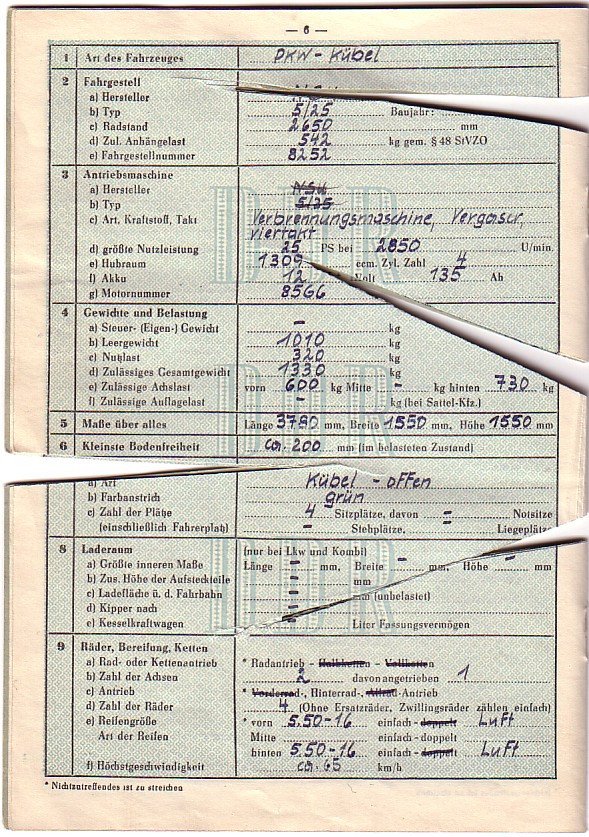 — 6 —
1 Art des Fahrzeuges PKW - Kübel
2 Fahrgestell
a) Hersteller
b) Typ 5/25 Baujahr:
c) Radstand 2650 mm
d) Zul. Anhängelast 542 kg gem. § 48 StVZO
e) Fahrgestellnummer 8252
3 Antriebsmaschine
a) Hersteller NSU
b) Typ 5/25
c) Art, Kraftstoff, Takt Verbrennungsmaschine, Vergaser,
viertakt
d) größte Nutzleistung 25 PS bei 2850 U/min.
e) Hubraum 1309 ccm. Zyl. Zahl 4
f) Akku 12 Volt 135 Ah
g) Motornummer 8566
4 Gewichte und Belastung
a) Steuer- (Eigen-) Gewicht - kg
b) Leergewicht 1010 kg
c) Nutzlast 320 kg
d) Zulässiges Gesamtgewicht 1330 kg
e) Zulässige Achslast vorn 600 kg Mitte - kg hinten 730 kg
f) Zulässige Auflagelast - kg (bei Sattel-Kfz.)
5 Maße über alles Länge 3780 mm, Breite 1550 mm, Höhe 1550 mm
6 Kleinste Bodenfreiheit ca. 200 mm (im belasteten Zustand)
a) Art Kübel - offen
b) Farbanstrich grün
c) Zahl der Plätze 4 Sitzplätze, davon - Notsitze
(einschließlich Fahrerplatz) - Stehplätze, Liegeplätze
8 Laderaum (nur bei Lkw und Kombi)
a) Größte inneren Maße Länge - mm, Breite - mm, Höhe - mm
b) Zus. Höhe der Aufsteckteile - mm
c) Ladefläche ü. d. Fahrbahn - mm (unbelastet)
d) Kipper nach -
e) Kesselkraftwagen - Liter Fassungsvermögen
9 Räder, Bereifung, Ketten
a) Rad- oder Kettenantrieb * Radantrieb - Halbketten - Vollketten
b) Zahl der Achsen 2 davon angetrieben 1
c) Antrieb * Vorderrad-, Hinterrad-, Allrad-Antrieb
d) Zahl der Räder 4 (Ohne Ersatzräder, Zwillingsräder zählen einfach)
e) Reifengröße * vorn 5.50-16 einfach - doppelt Luft
Art der Reifen Mitte einfach - doppelt
hinten 5.50-16 einfach - doppelt Luft
f) Höchstgeschwindigkeit ca. 65 km/h
* Nichtzutreffendes ist zu streichen
DDR
DDR
DDR